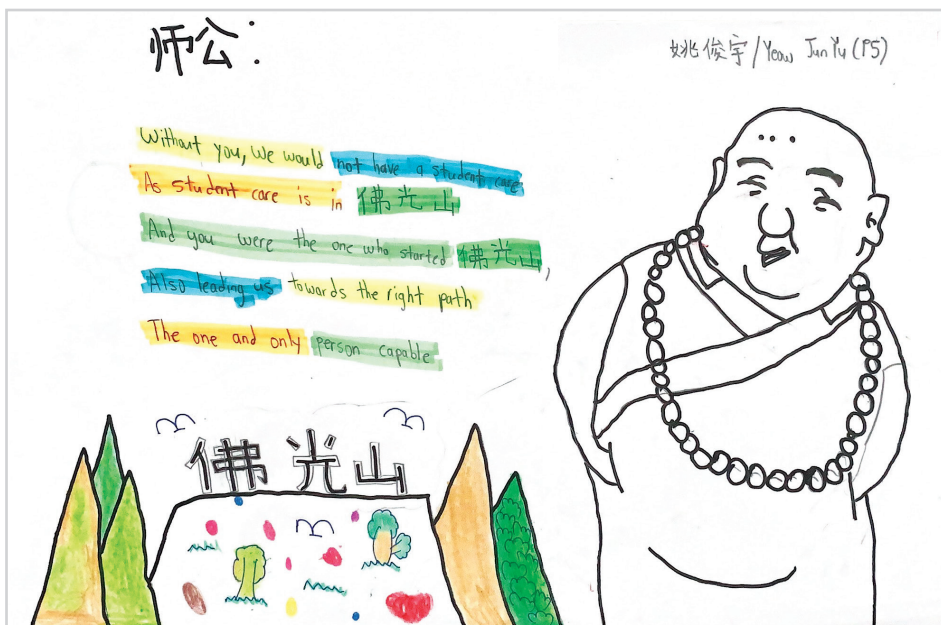 师公：
姚俊宇/Yeow JunYu (P5)
Without you, we would not have a student care
As student care is in 佛光山
And you were the one who started 佛光山,
Also leading us towards the right path
The one and only person capable
佛光山